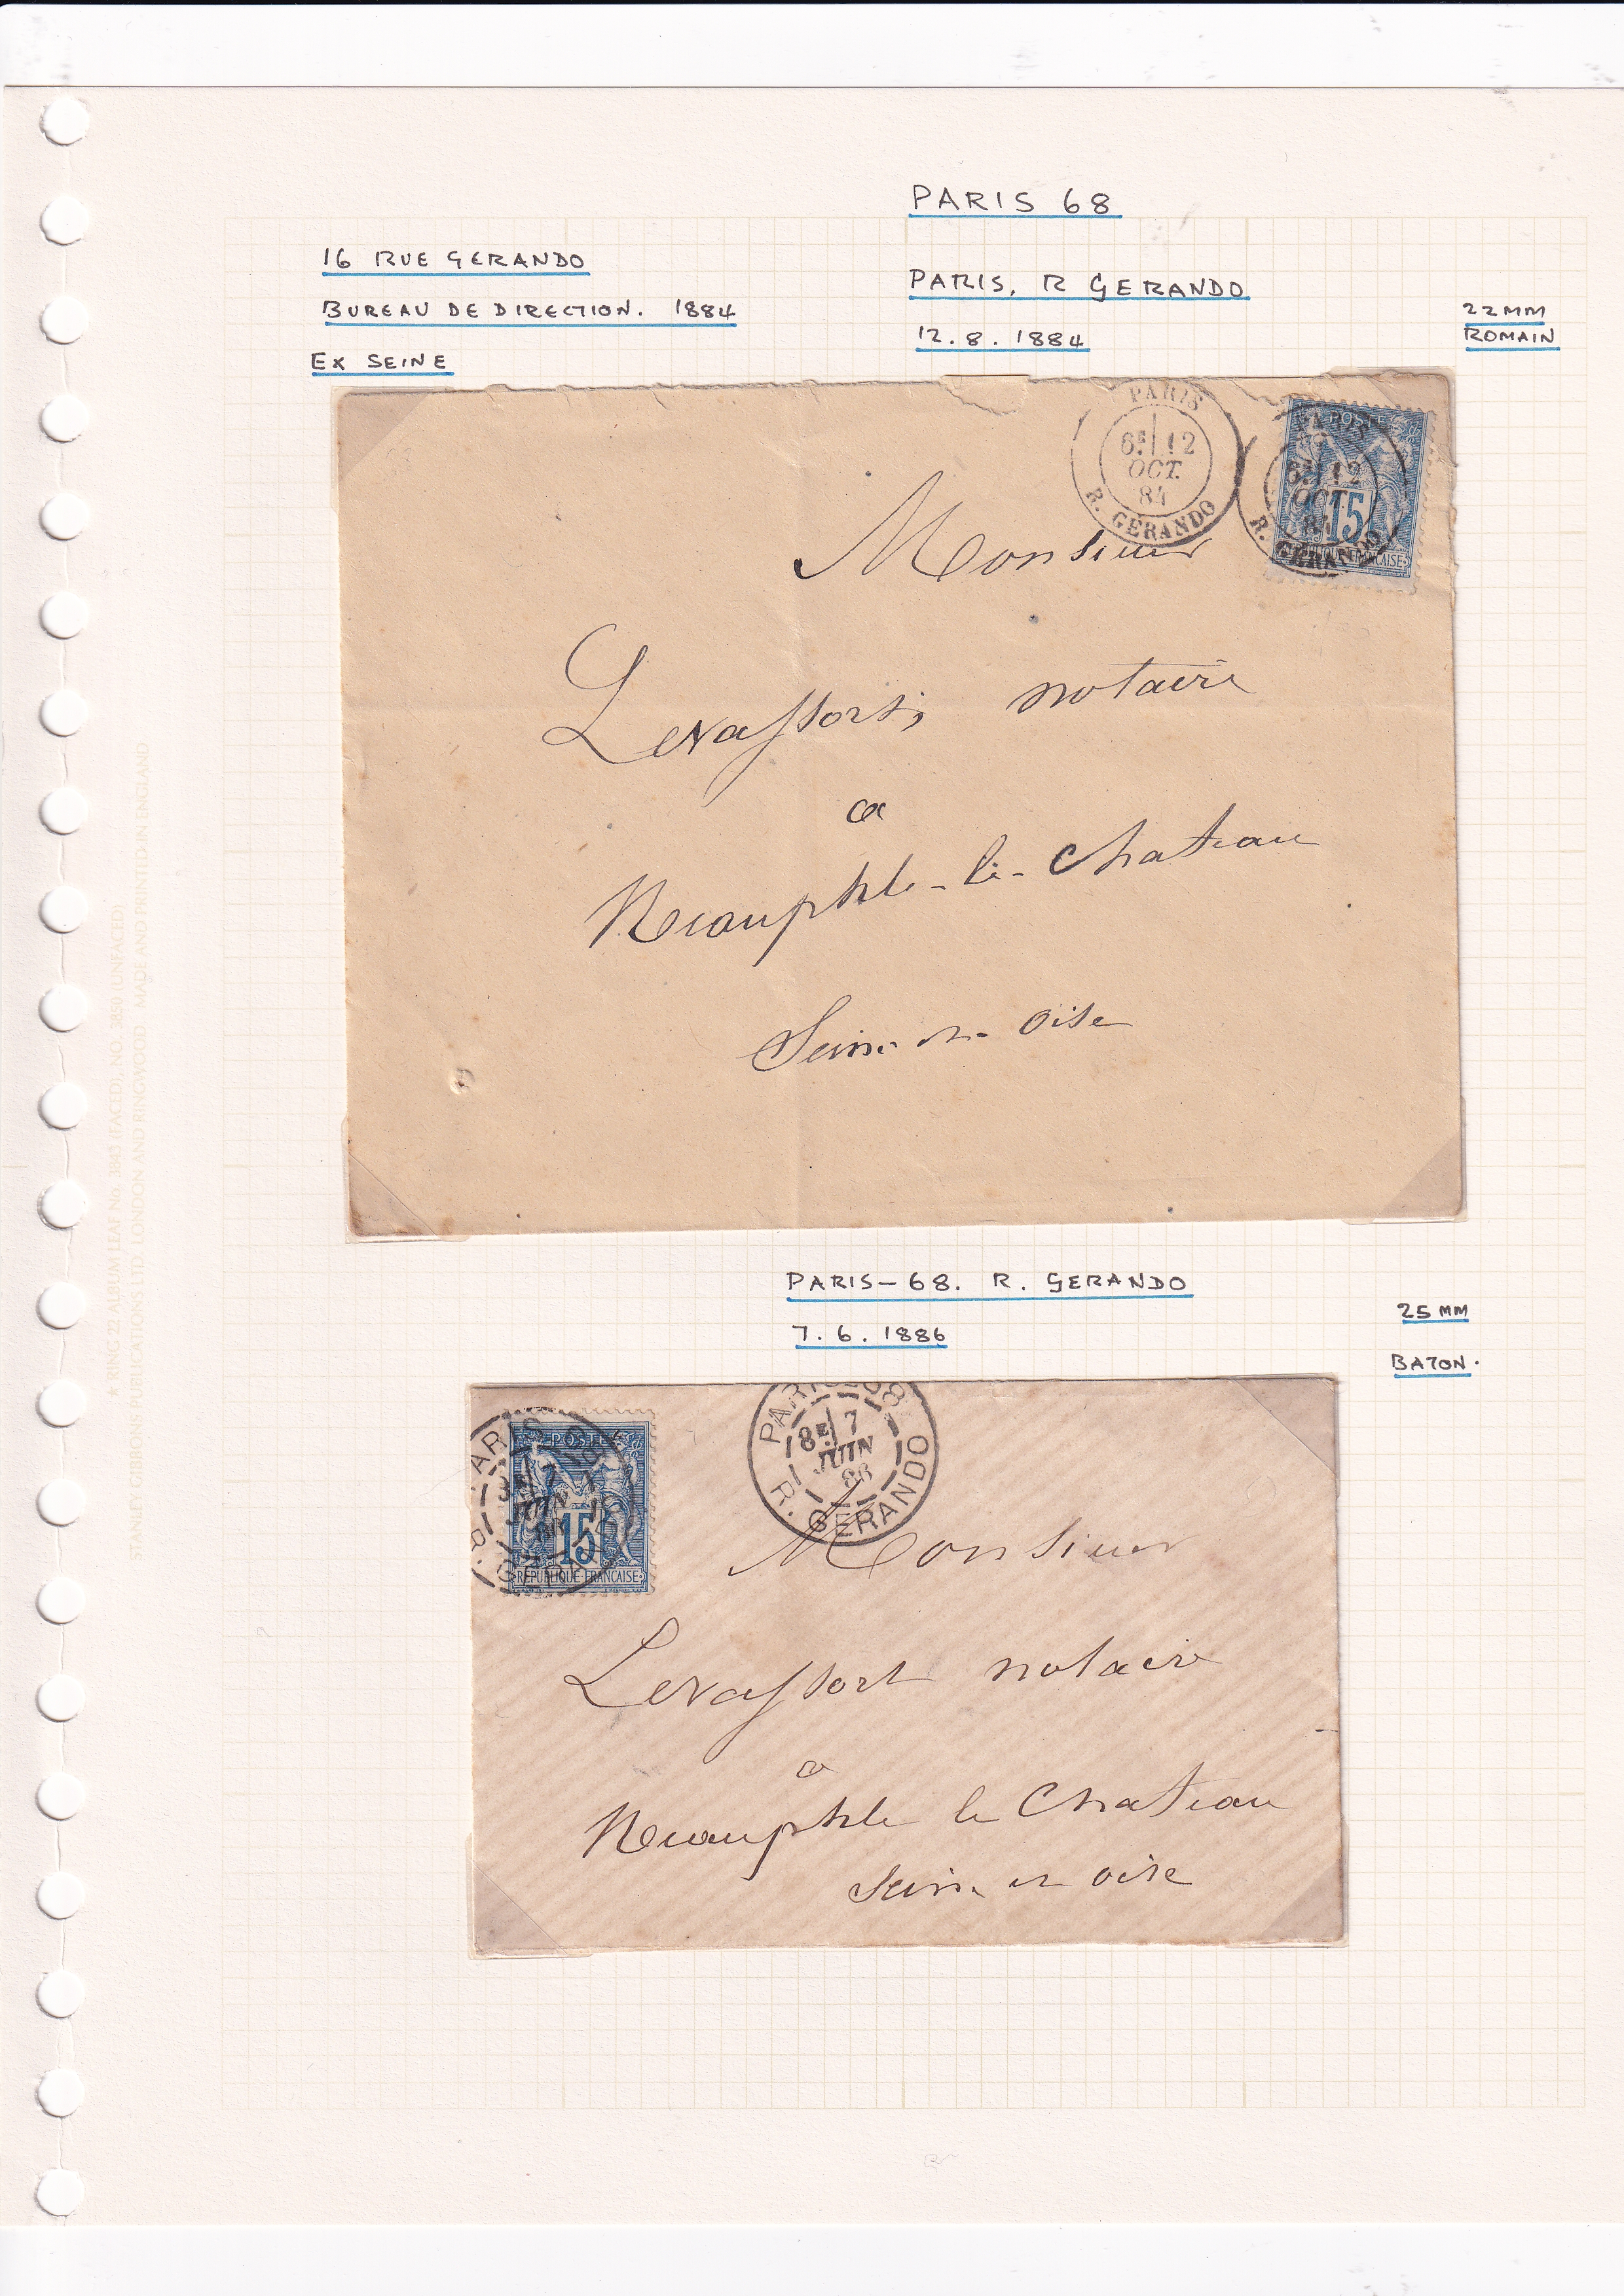 PARIS 68
16 RUE GERANDO
BUREAU DE DIRECTION. 1884
EX SEINE
PARIS, R GERANDO
12.8.1884
22MM
ROMAIN
PARIS
6E 12
OCT.
84
R. GERANDO
PARIS
6E 12
OCT.
84
R. GERANDO
POSTES
15
REPUBLIQUE FRANCAISE
Monsieur
Levassort, notaire
a
Neauphle-le-Chateau
Seine et Oise
PARIS-68. R. GERANDO
7.6.1886
25MM
BATON.
PARIS 68
7
JUIN
R. GERANDO
POSTES
15
REPUBLIQUE FRANCAISE
PARIS 68
8E 7
JUIN
86
R. GERANDO
Monsieur
Levassort notaire
a
Neauphle le Chateau
Seine et Oise
STANLEY GIBBONS PUBLICATIONS LTD, LONDON AND RINGWOOD. MADE AND PRINTED IN ENGLAND